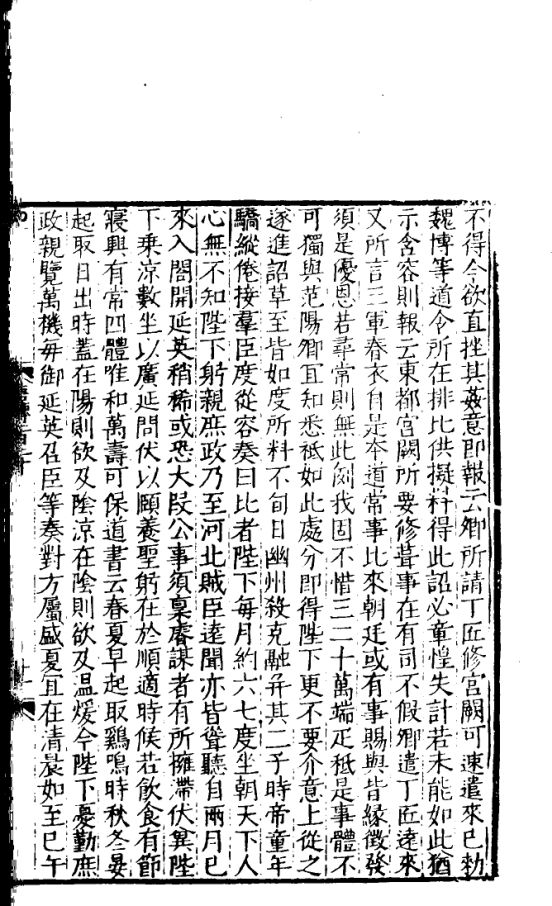 不得今欲直挫其姦意即報云卿所請丁匠修宮闕可速遣來已勑
魏博等道令所在排比供擬料得此詔必章惶失計若未能如此猶
示含容則報云東都宮闕所要修葺事在有司不假卿遣丁匠遠來
又所言三軍春衣自是本道常事比來朝廷或有事賜與皆緣徵發
須是優恩若尋常則無此例我固不惜三二十萬端疋秪是事體不
可獨與范陽卿宜知悉秪如此處分即得陛下更不要介意上從之
遂進詔草至皆如度所料不旬日幽州殺克融并其二子時帝童年
驕縱倦接羣臣度從容奏曰比者陛下每月約六七度坐朝天下人
心無不知陛下躬親庶政乃至河北賊臣遠聞亦皆聳聽自兩月已
來入閤開延英稍稀或恐大段公事須稟睿謀者有所擁滯伏冀陛
下乘涼數坐以廣延問伏以頤養聖躬在於順適時候若飲食有節
寢興有常四體唯和萬壽可保道書云春夏早起取鷄鳴時秋冬晏
起取日出時蓋在陽則欲及陰涼在陰則欲及温煖今陛下憂勤庶
政親覽萬機每御延英召臣等奏對方屬盛夏宜在清晨如至巳午